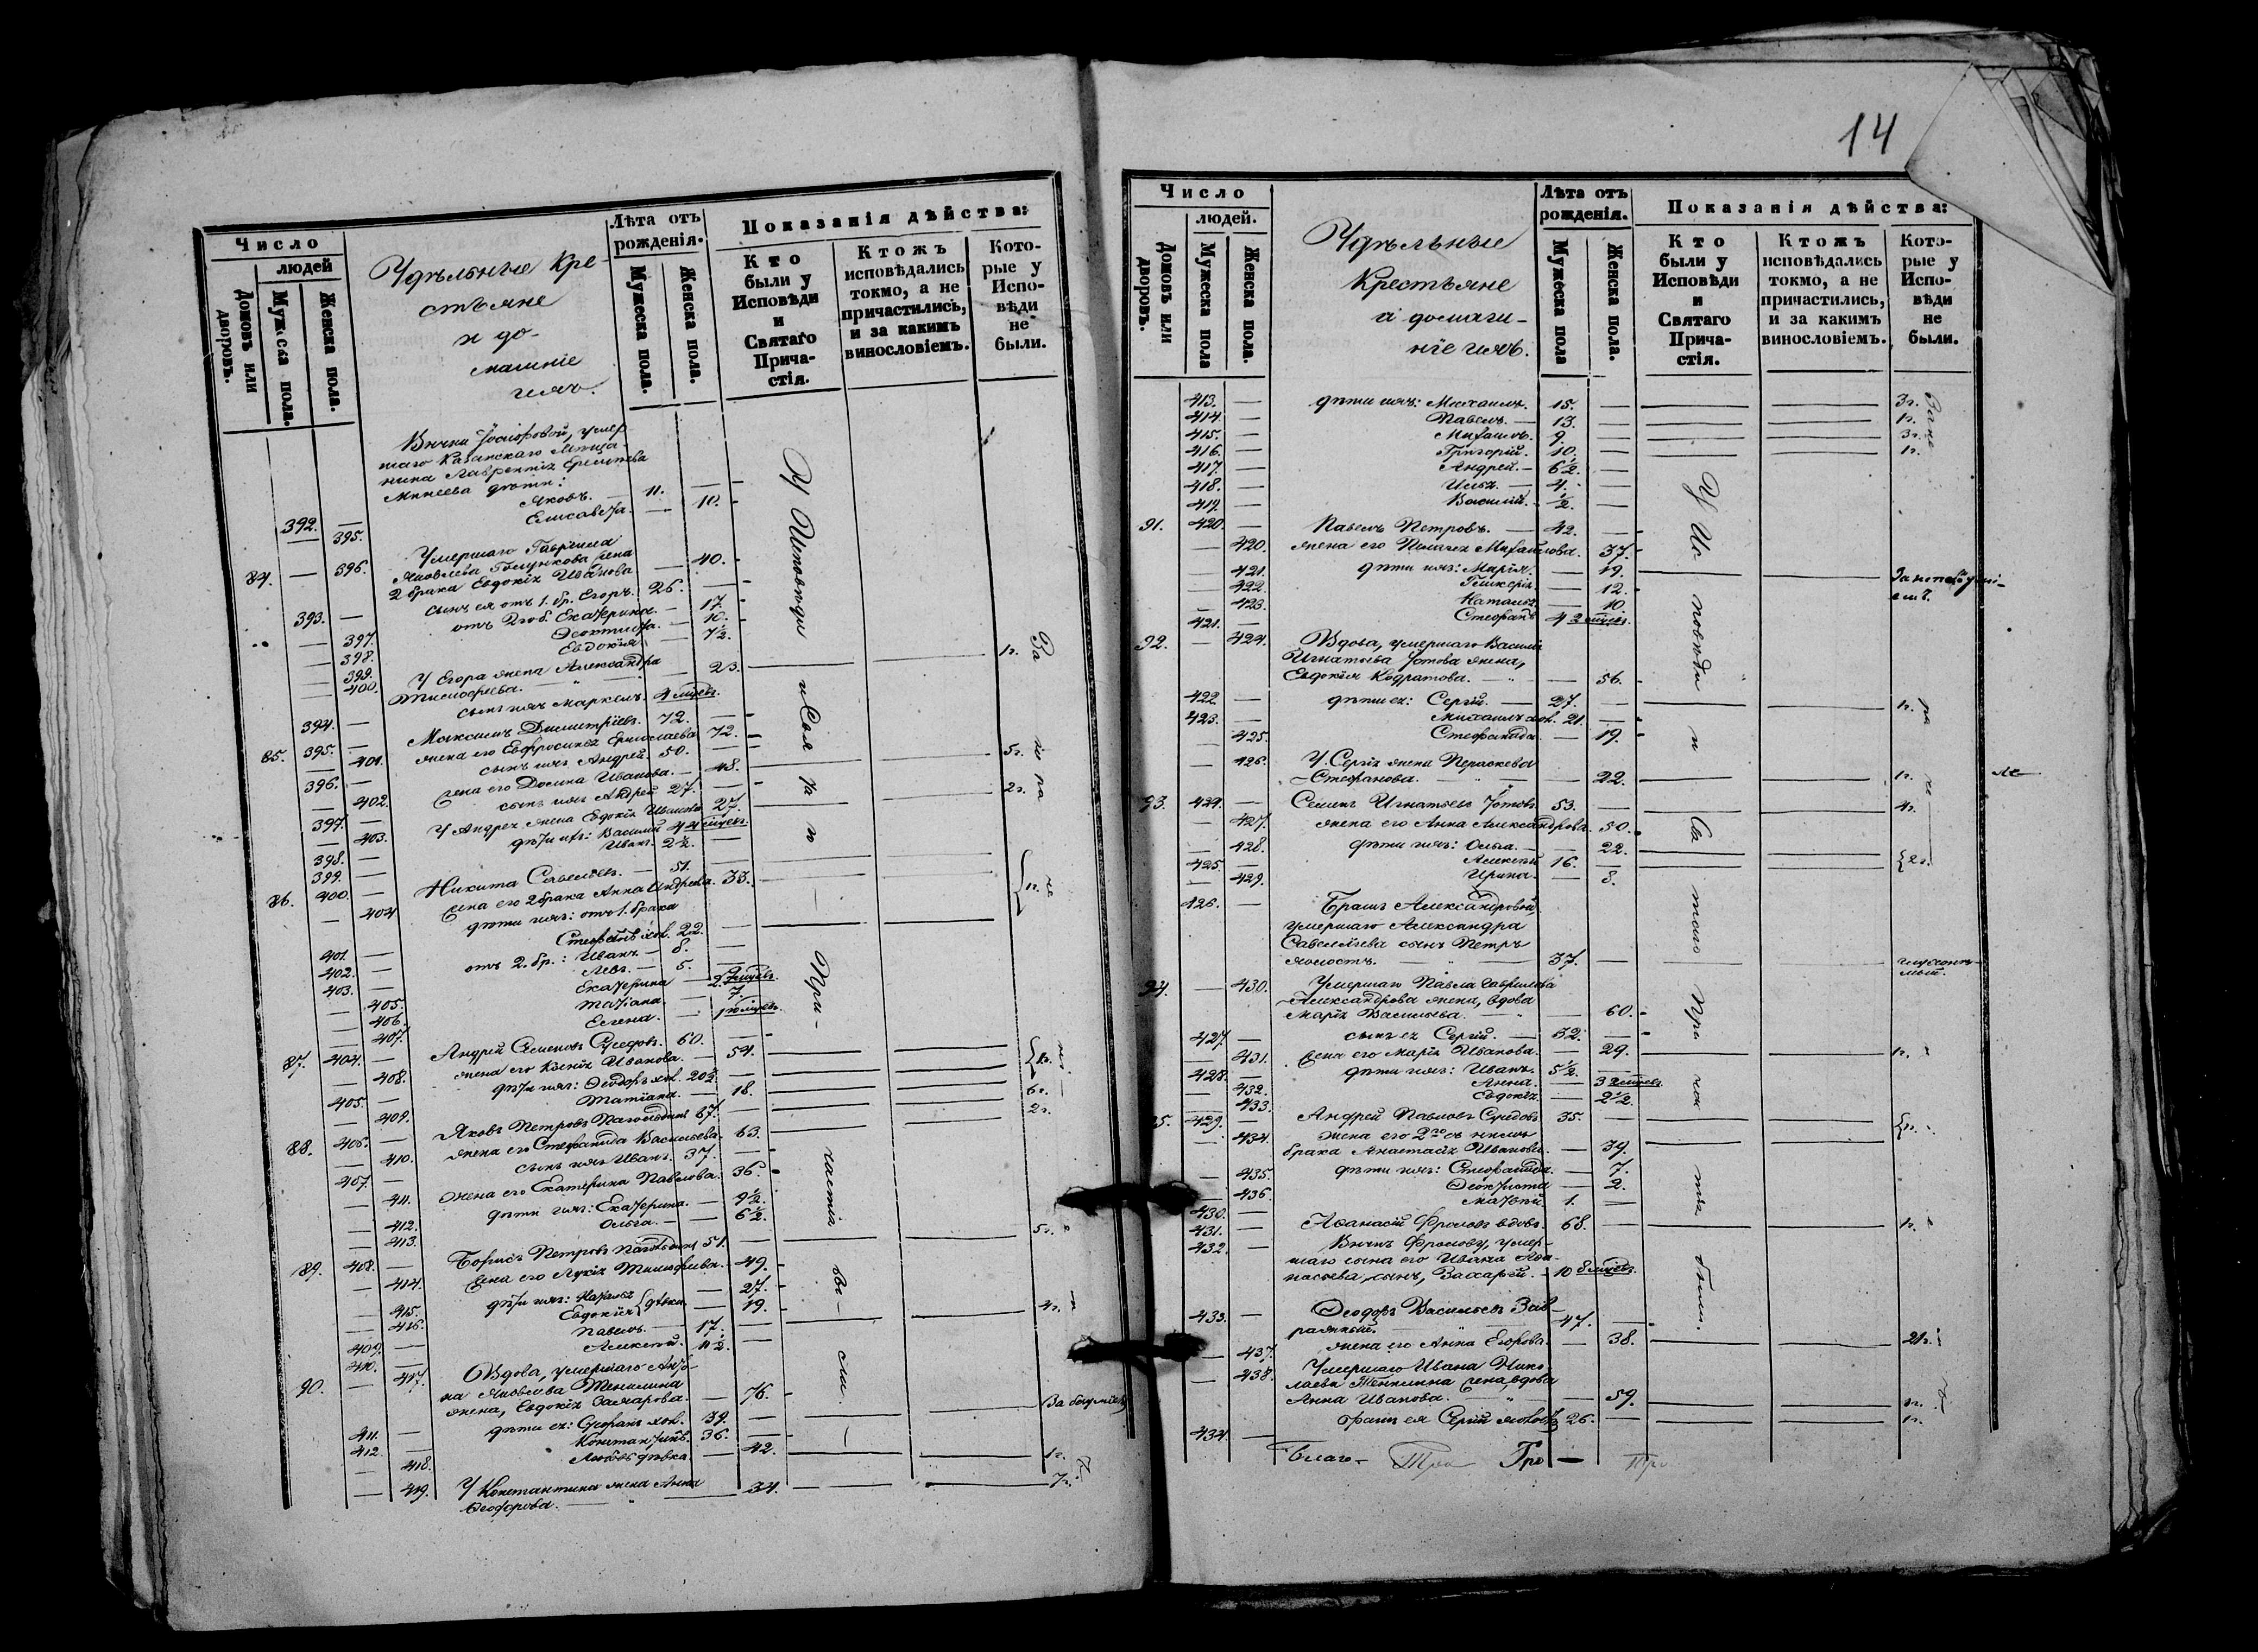 14
Число
людей
Домовъ или дворовъ.
Мужеска пола.
Женска пола.
Удѣльные кре-
стьяне
и до-
машніе
ихъ.
Лѣта отъ рожденія.
Мужеска пола.
Женска пола.
Показанія дѣйства:
Кто были у Исповѣди и Святаго Прича-стія.
Ктожъ исповѣдались токмо, а не причастились, и за какимъ винословіемъ.
Кото-рые у Испо-вѣди не были.
Внуки Іосифовой, умер-
шаго Казанскаго мѣща-
нина Лаврентія
Минеева дѣти:
392. — Яковъ. — 11. —
395. Елисавета. — 10.
Умершаго Гавріила
84. — 396. Яковлева жена
2 брака Евдокія Иванова — 40.
393. — сынъ ея отъ 1. бр. Егоръ. 26. —
— 397. отъ 2го б. Екатерина. — 17.
— 398. Феоктиста. — 10.
— 399. Евдокія. — 7½.
— 400. У Егора жена Александра
Тимофеева. — 23. 1г.
394. — сынъ ихъ Маркелъ. 4 мцевъ.
85. 395. — Максимъ Димитріевъ. 72. —
— 401. жена его Евфросинія Ермолаева 72.
396. — сынъ ихъ Андрей. 50. — 5г.
— 402. жена его Домна Иванова. — 48.
397. — сынъ ихъ Андрей 27. — 2г.
— 403. У Андрея жена Евдокія 27.
398. — дѣти ихъ: Василій 4 4 мцевъ.
399. — Иванъ. 2½. —
86. 400. — Никита Савельевъ. — 51. —
— 404 жена его 2 брака Анна Андреева. 33. 1г.
дѣти ихъ: отъ 1. брака
401. — Стефанъ хол. 22. —
402. — отъ 2. бр.: Иванъ. — 8. —
403. — Левъ. — 5. —
— 405. Екатерина — 2. 7 мцевъ.
— 406. Татіана. — 7.
— 407. Елена. — 1 10 мцевъ.
87. 404. — Андрей Семеновъ 60. —
— 408. жена его Ксенія Иванова. — 54. 1г.
405. — дѣти ихъ: Феодоръ хол. 20½. —
— 409. Татіана. — 18. 6г.
88. 406. — Яковъ Петровъ 67. — 2г.
— 410. жена его Стефанида Васильева. 63.
407. — сынъ ихъ Иванъ. 37. —
— 411. жена его Екатерина Павлова. 36.
— 412. дѣти ихъ: Екатерина. — 9½.
— 413. Ольга. — 6½.
89. 408. — Борисъ Петровъ 51. — 5г.
— 414. жена его Лукія Тимофеева. — 49.
— 415. дѣти ихъ: Наталья — 27.
— 416. Евдокія дѣвки. — 19.
409. — Павелъ. — 17. — 4г.
410. — Алексей. 11½. —
90. — 417. Вдова, умершаго
Яковлева
жена, Евдокія Захарова. — 76. За безуміемъ
411. — дѣти ея: Стефанъ хол. 39. —
412. — Константинъ. 36. —
— 418. Любовь дѣвка — 42. 1г.
— 419. У Константина жена Анна
Феодорова. — 34. 7г.
У Исповѣди и Свята го — При- частія бы- ли.
Число
людей.
Домовъ или дворовъ.
Мужеска пола
Женска пола.
Удѣльные
Крестьяне
и домаш-
ніе ихъ.
Лѣта отъ рожденія.
Мужеска пола
Женска пола.
Показанія дѣйства:
Кто были у Исповѣди и Святаго Прича-стія.
Ктожъ исповѣдались токмо, а не причастились, и за какимъ винословіемъ.
Кото-рые у Испо-вѣди не были.
413. — дѣти ихъ: Михаилъ. 15. — 3г.
414 — Павелъ. — 13. — 1г.
415. — Михаилъ. 9. — 3г.
416. — Григорій. 10. — 1г.
417. — Андрей. — 6½. —
418. — Илья. — 4. —
419. — Василій. ½. —
91. 420. — Павелъ Петровъ. — 42. —
— 420. жена его Михайлова. 37.
— 421. дѣти ихъ: Марія. — 19.
— 422. Гликерія. — 12.
— 423. Наталья. — 10.
421. — Стефанъ 4 2 мцевъ.
92. — 424. Вдова, умершаго Василія
Игнатьева жена,
Евдокія Кодратова. — 56.
422. — дѣти ея: Сергій. — 27. — 1г.
423. — Михаилъ хол. 21. —
— 425. Стефанида. — 19.
— 426. У Сергія жена Параскева
Стефанова. — 22. 1г.
93. 424. — Семенъ Игнатьевъ 53. — 4г.
— 427. жена его Анна Александрова. 50.
— 428. дѣти ихъ: Ольга. — 22.
425. — Алексей 16. — 2г.
— 429. Ирина. — 8.
426. — Братъ Александровой,
умершаго Александра
Савельева сынъ Петръ
холостъ. — 37. — глухонѣ-
мый.
94. — 430. Умершаго Павла Гаврилова
Александрова жена, вдова
Марія Васильева. — 60.
427. — сынъ ея Сергій. — 32. —
— 431. жена его Марія Иванова. — 29. 1г.
428. — дѣти ихъ: Иванъ. 5½. —
— 432. Анна. — 3 2 мцевъ
— 433. Евдокія. — 2½.
95. 429. — Андрей Павловъ 35. —
— 434. жена его 2го съ нимъ 1г.
брака Анастасія Иванова. — 39.
— 435. дѣти ихъ: Стефанида. — 7.
— 436. Феоктиста — 2.
430. — Матвей. 1. —
431. — Афанасій Фроловъ вдовъ. 68. — 1г.
432. — Внукъ Фролову, умер-
шаго сына его Ивана Афа-
насьева, сынъ, Захарій. — 10 8 мцевъ.
433. — Феодоръ Васильевъ
47. —
— 437. жена его Анна Егорова. — 38. 21г.
— 438. Умершаго Ивана Нико-
лаева жена, вдова
Анна Иванова. — 59.
434. — братъ ея Сергій 26. — 1г.
У Ис- повѣди и Свя- таго При- час- тія были.
Благо-